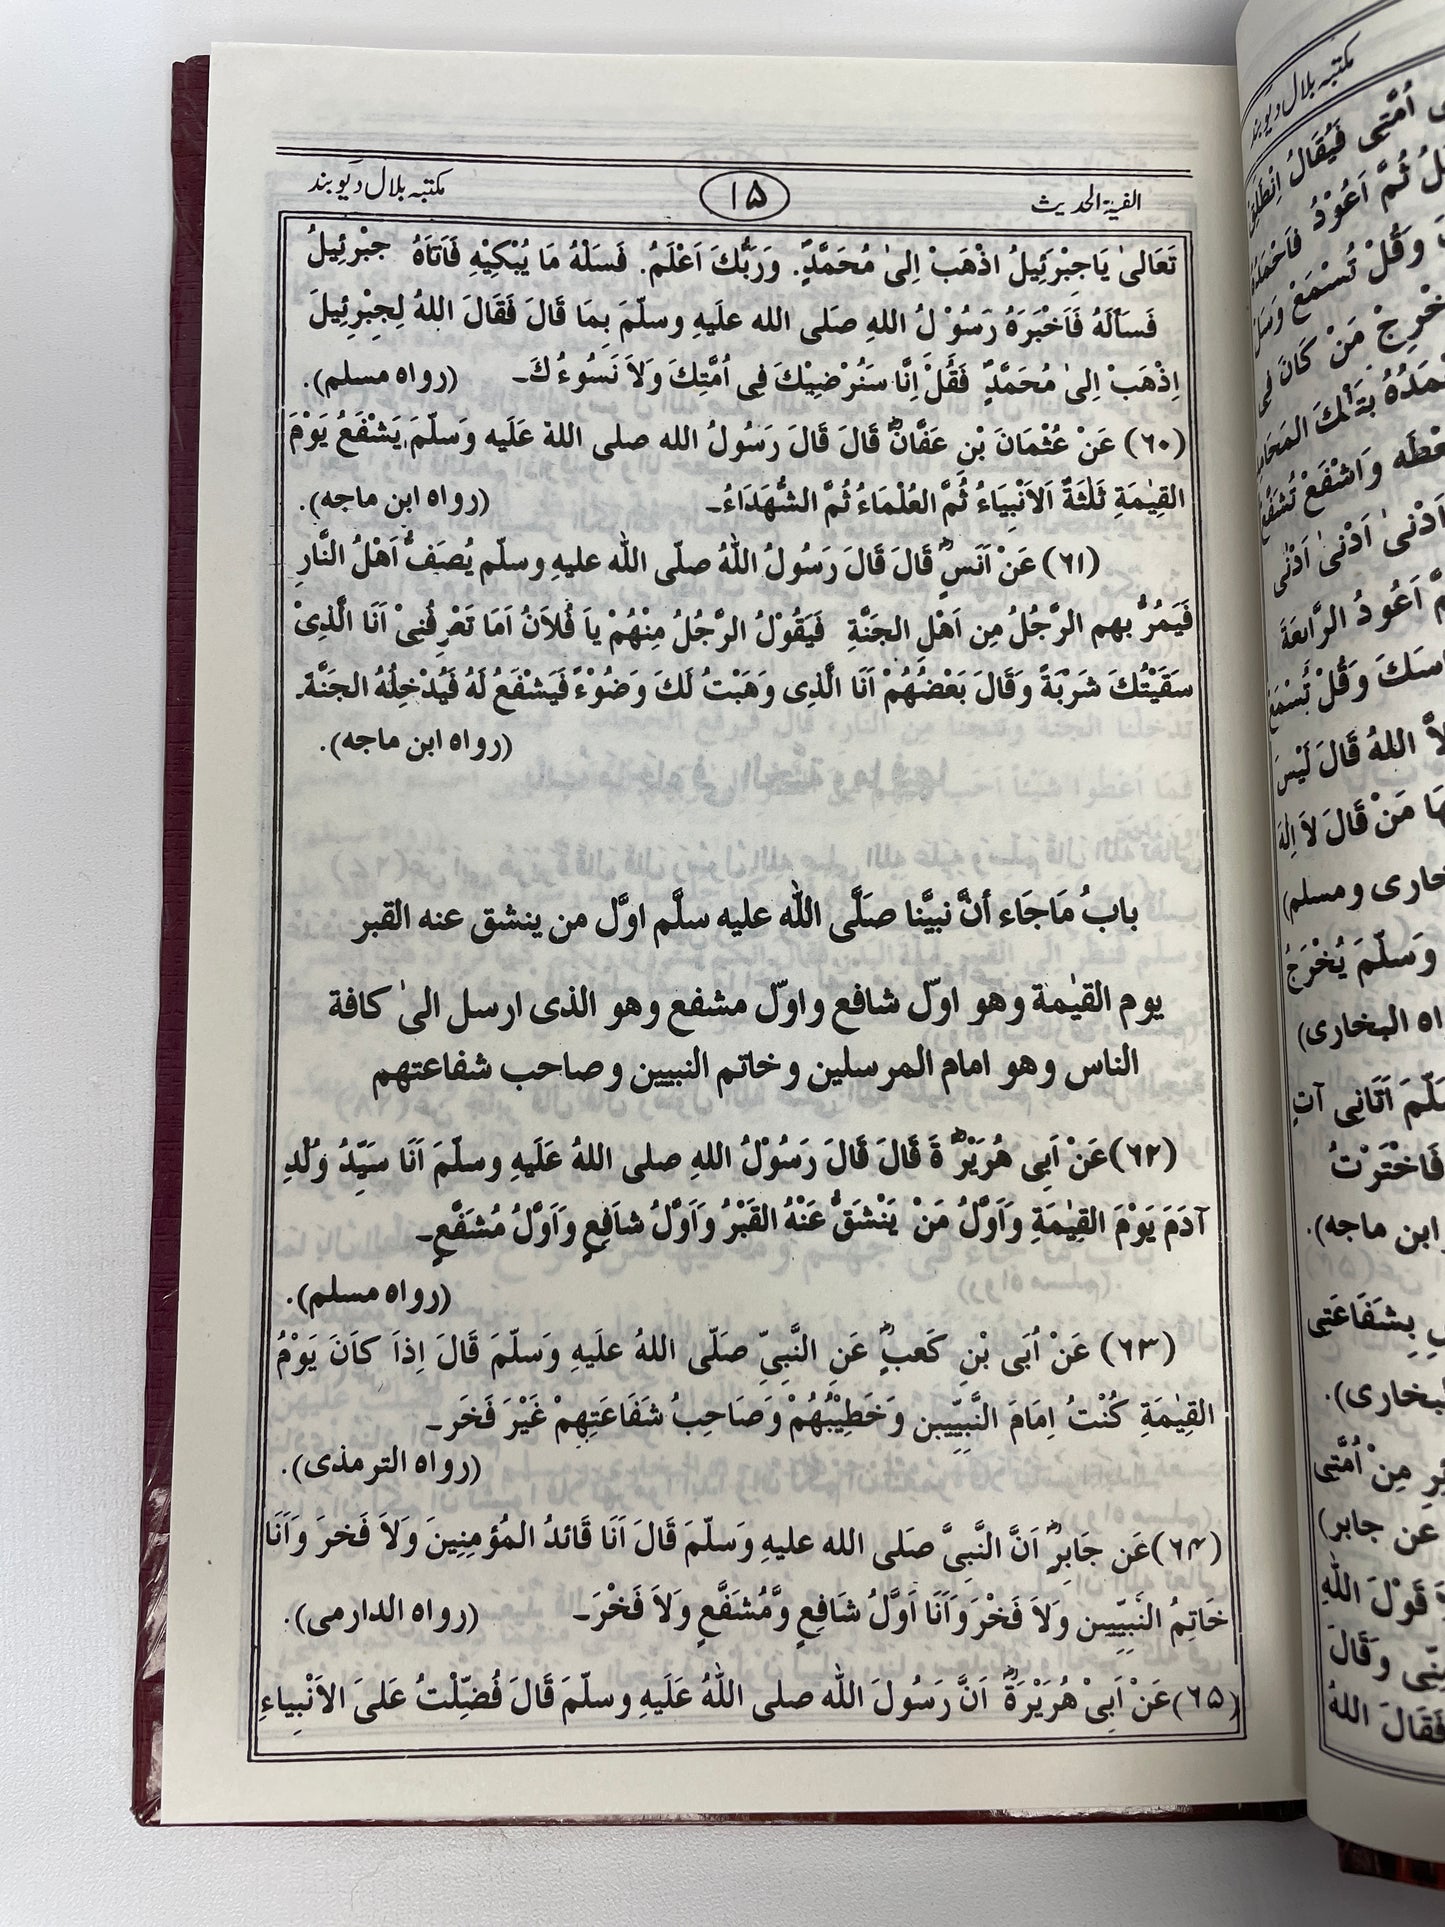 الفية الحديث
١٥
مکتبہ بلال دیوبند
تَعَالىٰ يَاجِبْرَئِيلُ اذْهَبْ اِلىٰ مُحَمَّدٍؐ. وَرَبُّكَ اَعْلَمُ. فَسَلْهُ مَا يُبْكِيْهِ فَاَتَاهُ جِبْرِئِيلُ
فَسَاَلَهُ فَاَخْبَرَهُ رَسُوْلُ اللهِ صلى الله علَيهِ وسلّمَ بِمَا قَالَ فَقَالَ اللهُ لِجِبْرِئِيلَ
اِذْهَبْ اِلىٰ مُحَمَّدٍؐ فَقُلْ اِنَّا سَنُرْضِيْكَ فِى اُمَّتِكَ وَلاَ نَسُوءُكَ۔ (رواه مسلم).
(٦٠) عَنْ عُثْمَانَ بْنِ عَفَّانَؓ قَالَ قَالَ رَسُولُ الله صلى اللهْ عَلَيه وَسَلّمَ يَشْفَعُ يَوْمَ
القِيٰمَةِ ثَلٰثَةٌ اَلاَنْبِيَاءُ ثُمَّ العُلْمَاءُ ثُمَّ الشُّهَدَاءُ۔ (رواه ابن ماجه).
(٦١) عَنْ اَنَسٍؓ قَالَ قَالَ رَسُولُ اللّٰهُ صلّى الله عليهِ وسلّم يُصَفُّ اَهْلُ النَّارِ
فَيَمُرُّ بهم الرَّجُلُ مِن اَهْلِ الجَنَّةِ فَيَقُوْلُ الرَّجُلُ مِنْهُمْ ياَ فُلاَنُ اَمَا تَعْرِفُنِىْ اَنَا الَّذِىْ
سَقَيْتُكَ شَرْبَةً وَقَالَ بَعْضُهُمْ اَنَا الَّذِى وَهَبْتُ لَكَ وَضُوْءً فَيَشْفَعُ لَهُ فَيُدْخِلُهُ الجَنَّةَ.
(رواه ابن ماجه).
بابُ مَاجَاء أنَّ نبيَّنا صَلَّى اللّٰه عليه سلَّم اوَّل من ينشق عنه القبر
يوم القيٰمة وهو اوّل شافع واوّل مشفع وهو الذى ارسل الىٰ كافة
الناس وهو امام المرسلين وخاتم النبيين وصاحب شفاعتهم
(٦٢) عَنْ اَبِى هُرَيْرَؓةَ قَالَ قَالَ رَسُوْلُ اللهِ صلى اللهُ عَلَيهِ وسلّمَ اَنَا سَيِّدُ وُلْدِ
آدَمَ يَوْمَ القِيٰمَةِ وَاَوَّلُ مَنْ يَنْشَقُّ عَنْهُ القَبْرُ وَاَوَّلُ شاَفِعٍ وَاَوَّلُ مُشَفَّعٍ۔
(رواه مسلم).
(٦٣) عَنْ اُبَى بْنِ كَعبٍؓ عَنِ النَّبِيِّ صَلّى اللهُ علَيهِ وَسَلّمَ قَالَ اِذاَ كاَنَ يَوْمُ
القِيٰمَةِ كُنْتُ اِمَامَ النَّبِيِّين وَخَطِيْبُهُمْ وَصَاحِبُ شَفَاعَتِهِمْ غَيْرَ فَخَر۔
(رواه الترمذى).
(٦٤) عَن جَابِرٍؓ اَنَّ النَّبِىَّ صَلى الله عليهِ وَسَلّمَ قَالَ اَنَا قَائدُ المُؤمِنِينَ وَلاَ فَخرَ وَاَنَا
خَاتِمُ النَّبِيِّين وَلاَ فَخْرَ وَاَنَا اَوَّلُ شَافِعٍ وَّمُشَفَّعٍ وَلاَ فَخْرَ۔ (رواه الدارمى).
(٦٥) عَنْ اَبِىْ هُرَيْرَةَؓ اَنَّ رَسُولَ اللّٰه صلى اللّٰهُ عَلَيهِ وسلّمَ قَالَ فُضِّلْتُ عَلىَ الاَنْبِياءِ
مکتبہ بلال دیوبند
اُمَّتِى فَيُقَالُ اِنْطَلِقْ
ثُمَّ اَعُوْدُ فاَحْمَدُهُ
وَقُلْ تُسْمَعْ وَسَلْ
مَنْ كَانَ فِى
بِتِلْكَ المَحَامِدِ
وَاشْفَعْ تُشَفَّعْ
اَدْنىٰ اَدْنىٰ اَدْنىٰ
اَعُودُ الرَّابِعَةَ
وَقُلْ تُسْمَعْ
اللهُ قَالَ لَيْسَ
مَنْ قَالَ لاَ اِلهَ
ومسلم)
وَسَلّمَ يُخْرَجُ
البخارى)
اَتَانِى آتٍ
فَاخْتَرْتُ
ابن ماجه).
بِشَفَاعَتِى
مِنْ اُمَّتِى
عن جابر)
قَوْلَ اللّٰهِ
وَقَالَ
فَقَالَ اللهُ